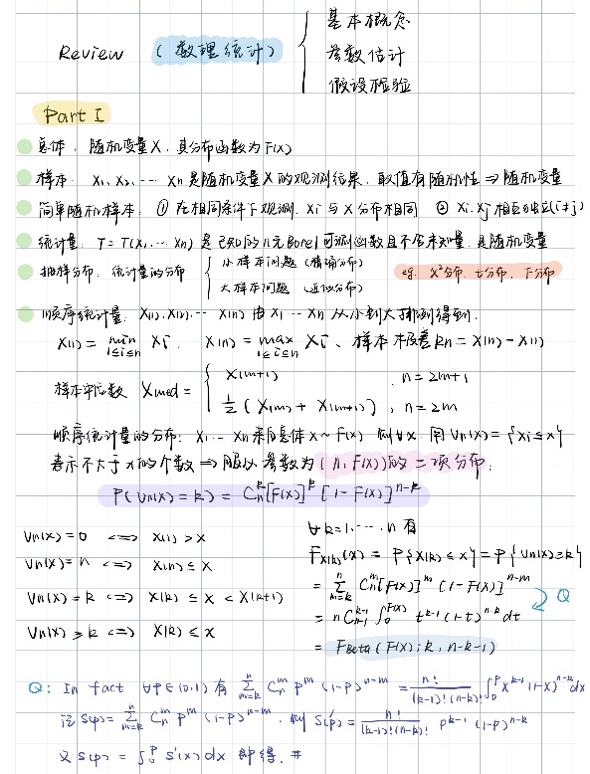 Review （数理统计） { 基本概念
参数估计
假设检验
Part I
总体：随机变量X，其分布函数为F(x)
样本：X₁, X₂, … Xn 是随机变量X的观测结果，取值有随机性 ⇒ 随机变量
简单随机样本：① 在相同条件下观测，Xi与X分布相同 ② Xi, Xj 相互独立(i≠j)
统计量：T = T(X₁, … Xn) 是已知的n元Borel可测函数且不含未知量，是随机变量
抽样分布：统计量的分布 { 小样本问题（精确分布）
大样本问题（近似分布）
eg. χ²分布，t分布，F分布
顺序统计量：X(1), X(2), … X(n) 由 X₁ … Xn 从小到大排列得到.
X(1) = min_{1≤i≤n} Xi, X(n) = max_{1≤i≤n} Xi、样本极差Rn = X(n) - X(1)
样本中位数 Xmed = { X(m+1) , n = 2m+1
½ (X(m) + X(m+1)) , n = 2m
顺序统计量的分布：X₁ … Xn 来自总体X ~ F(x) 则∀x, 用Vn(x) = {Xi ≤ x}
表示不大于x的个数 ⇒ 服从参数为(n, F(x))的二项分布：
P(Vn(x) = k) = C_n^k [F(x)]^k [1 - F(x)]^{n-k}
Vn(x) = 0 <=> X(1) > x
Vn(x) = n <=> X(n) ≤ x
Vn(x) = k <=> X(k) ≤ x < X(k+1)
Vn(x) ≥ k <=> X(k) ≤ x
∀k=1, … , n 有
F_{X(k)}(x) = P{X(k) ≤ x} = P{Vn(x) ≥ k}
= Σ_{m=k}^n C_n^m [F(x)]^m [1 - F(x)]^{n-m}
= n C_{n-1}^{k-1} ∫_0^{F(x)} t^{k-1} (1-t)^{n-k} dt
Q
= FBeta (F(x); k, n-k-1)
Q: In fact ∀p∈(0,1) 有 Σ_{m=k}^n C_n^m p^m (1-p)^{n-m} = n!/((k-1)!(n-k)!) ∫_0^p x^{k-1} (1-x)^{n-k} dx
记S(p) = Σ_{m=k}^n C_n^m p^m (1-p)^{n-m}, 则 S'(p) = n!/((k-1)!(n-k)!) p^{k-1} (1-p)^{n-k}
又 S(p) = ∫_0^p S'(x) dx 即得. #